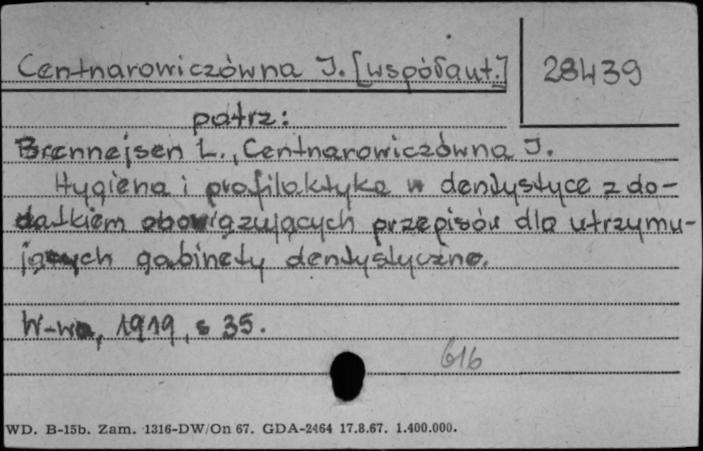 Centnarowiczówna J. [współaut.]
28439
patrz:
Brennejsen L., Centnarowiczówna J.
Hygiena i profilaktyka w dentystyce z do-
datkiem obowiązujących przepisów dla utrzymu-
jących gabinety dentystyczne.
W-wa, 1919, s 35.
616
WD. B-15b. Zam. 1316-DW/On 67. GDA-2464 17.8.67. 1.400.000.